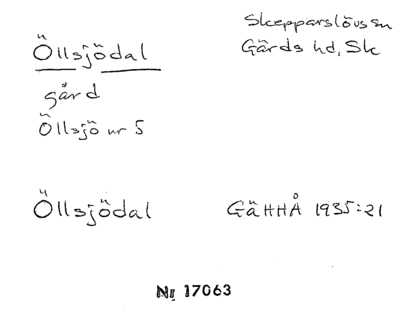 Öllsjödal
Skepparslövs sn
Gärds hd, Sk
gård
Öllsjö nr 5
Öllsjödal
GäHHÅ 1935:21
Nr 17063